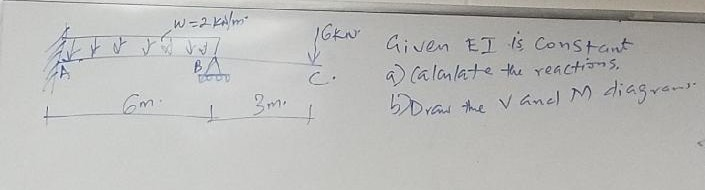 W=2KN/m.
6KN
A
B
C.
6m.
3m.
Given EI is constant
a) Calculate the reactions.
b) Draw the V and M diagrams